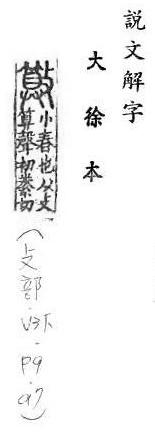 說文解字
大徐本
小舂也从攴
算聲初絭切
(攴部·卷3下·P9·a7)